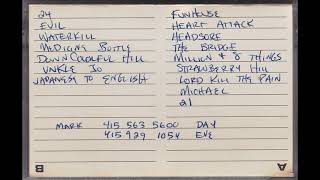 24
EVIL
WATERKILL
MEDICINE BOTTLE
DOWN COLORFUL HILL
UNKLE JO
JAPANESE TO ENGLISH
FUNHOUSE
HEART ATTACK
HEADSORE
THE BRIDGE
MILLION & 8 THINGS
STRAWBERRY HILL
LORD KILL THE PAIN
MICHAEL
21
MARK 415 563 5600 DAY
415.929 1054 EVE
B
A